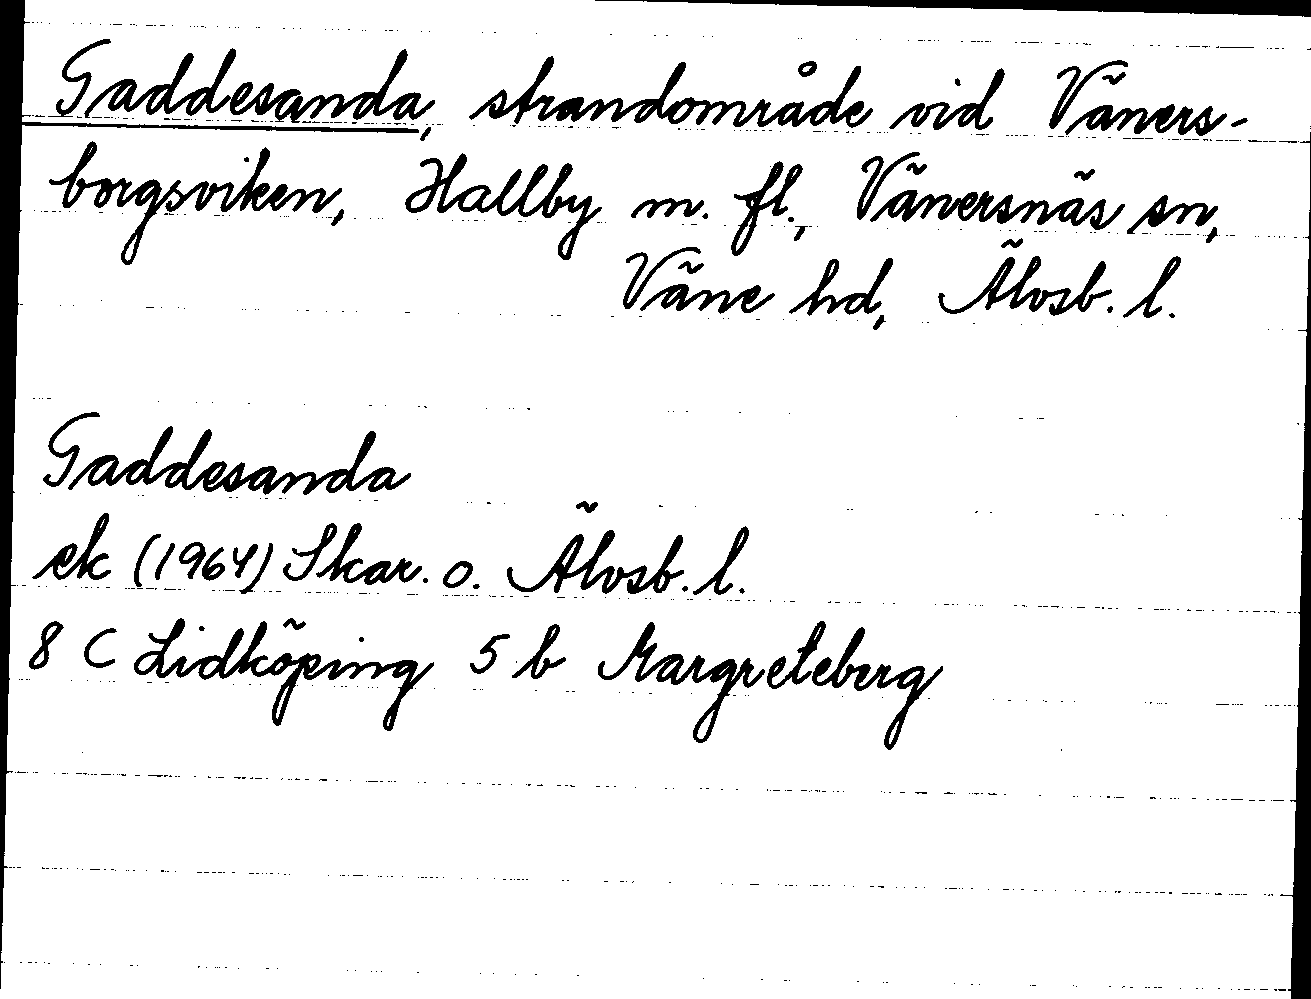 Gaddesanda, strandområde vid Väners-
borgsviken, Hallby m. fl., Vänersnäs sn,
Väne hd, Älvsb. l.
Gaddesanda
ek (1964) Skar. o. Älvsb. l.
8 C Lidköping 5 b Margreteberg